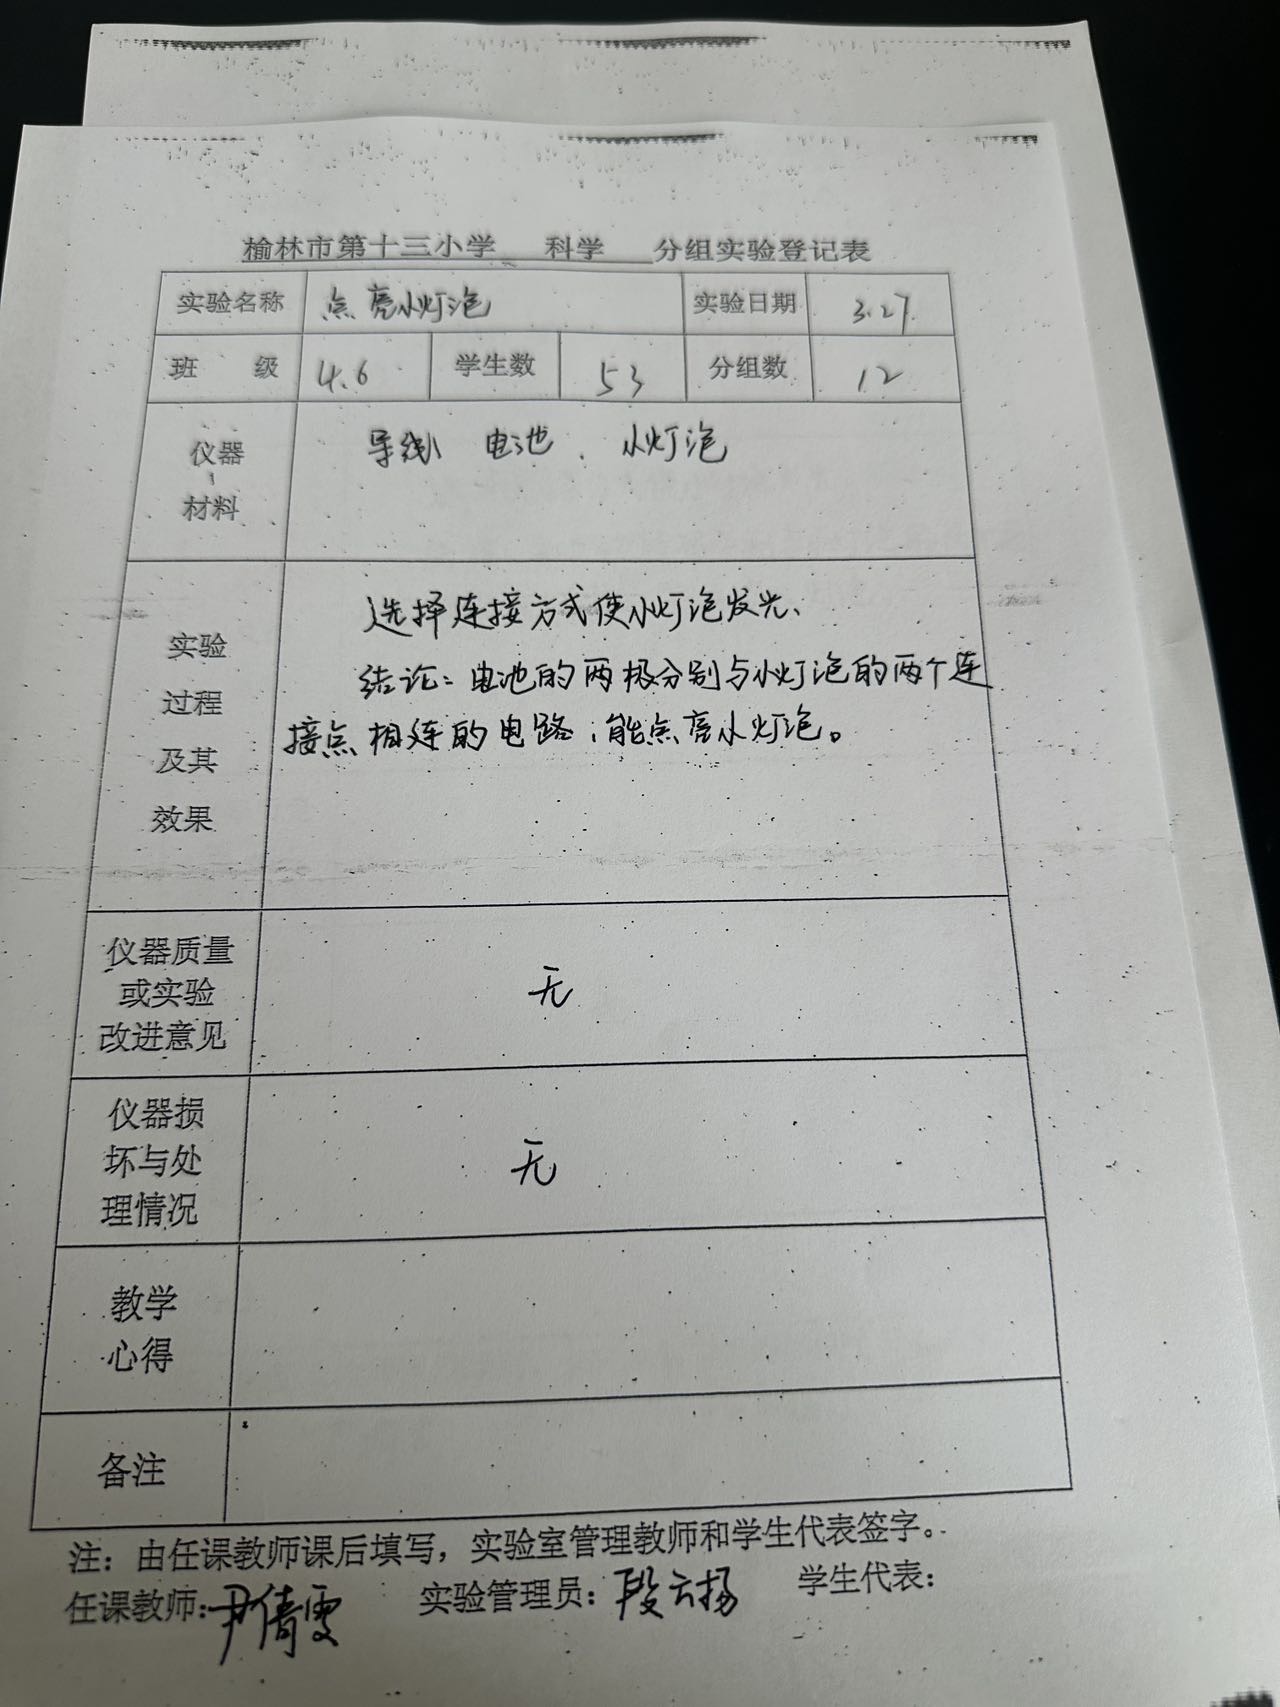 榆林市第十三小学 科学 分组实验登记表
实验名称 点亮小灯泡 实验日期 3.27
班 级 4.6 学生数 53 分组数 12
仪器
材料
导线 电池 、小灯泡
实验
过程
及其
效果
选择连接方式使小灯泡发光、
结论：电池的两极分别与小灯泡的两个连
接点相连的电路，能点亮小灯泡。
仪器质量
或实验
改进意见
无
仪器损
坏与处
理情况
无
教学
心得
备注
注：由任课教师课后填写，实验室管理教师和学生代表签字。
任课教师：尹倩雯 实验管理员：段云扬 学生代表：